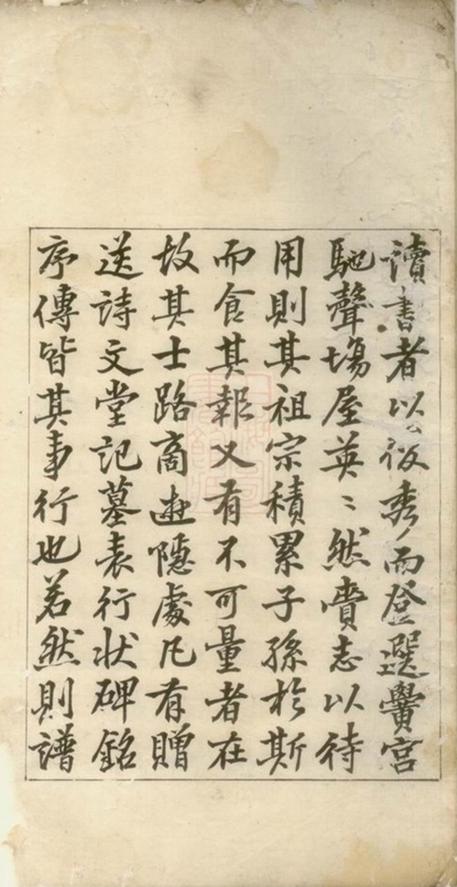 讀書者以俊秀而登選黌宮
馳聲場屋英〻然賫志以待
用則其祖宗積累子孫於斯
而食其報又有不可量者在
故其士路商逰隱處凡有贈
送詩文堂記墓表行狀碑銘
序傳皆其事行也若然則譜